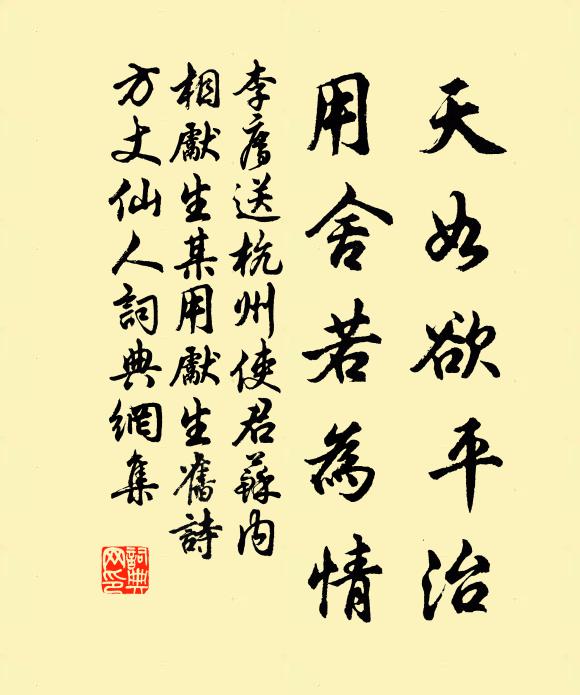 天如欲平治
用舍若為情
李廌送杭州使君蘇內
相獻生某用獻生舊詩
方丈仙人詞典網集
詞典網印